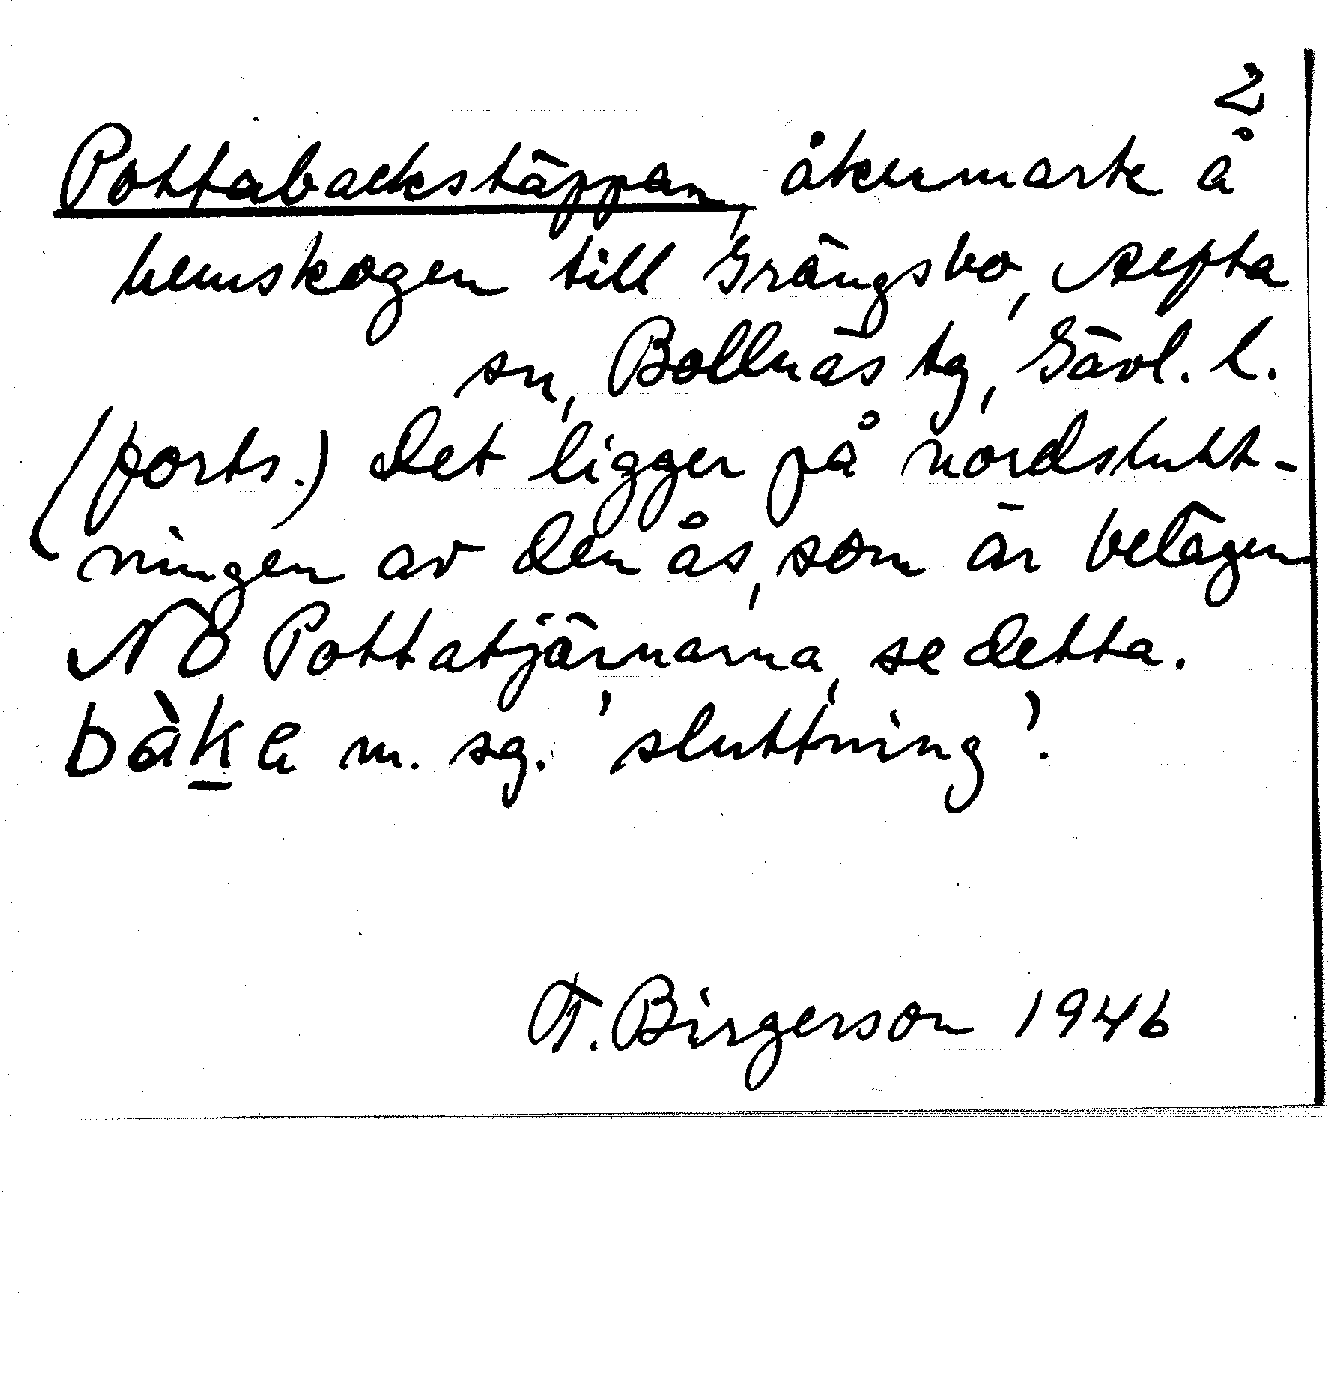 2
Pottabackstäppan, åkermark å
hemskogen till Grängsbo, Alfta
sn, Bollnäs tg, Gävl. l.
(forts.) Det ligger på nordslutt-
ningen av den ås, som är belägen
NO Pottatjärnarna, se detta.
bàka m. sg. 'sluttning'.
F. Birgerson 1946